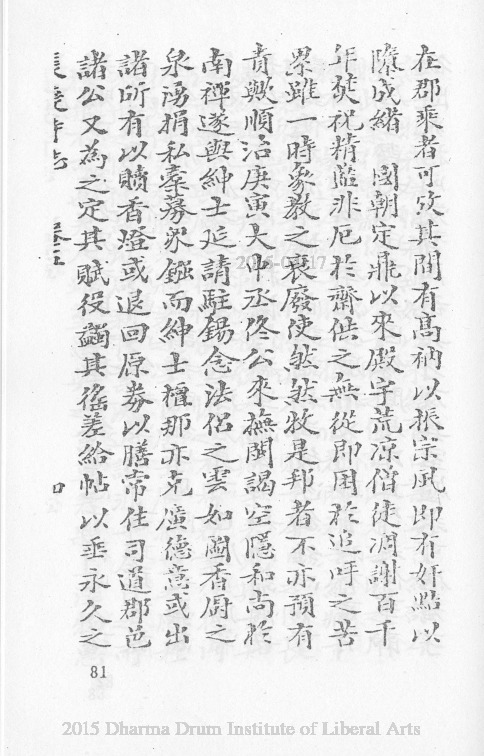 在郡乘者可攷其間有高衲以振宗風即有奸黠以
隳成緒 國朝定鼎以來殿宇荒凉僧徒凋謝百千
年焚祝精藍非厄於齋供之無從即困於追呼之苦
累雖一時象教之衰廢使然然牧是邦者不亦預有
責歟順治庚寅大中丞佟公來撫閩謁空隱和尚於
南禪遂與紳士延請駐錫念法侶之雲如闐香廚之
泉湧捐私橐募眾鏹而紳士檀那亦克廣德意或出
諸所有以贖香燈或退回原券以膳常住司道郡邑
諸公又為之定其賦役蠲其徭差給帖以垂永久之
81
2015 Dharma Drum Institute of Liberal Arts